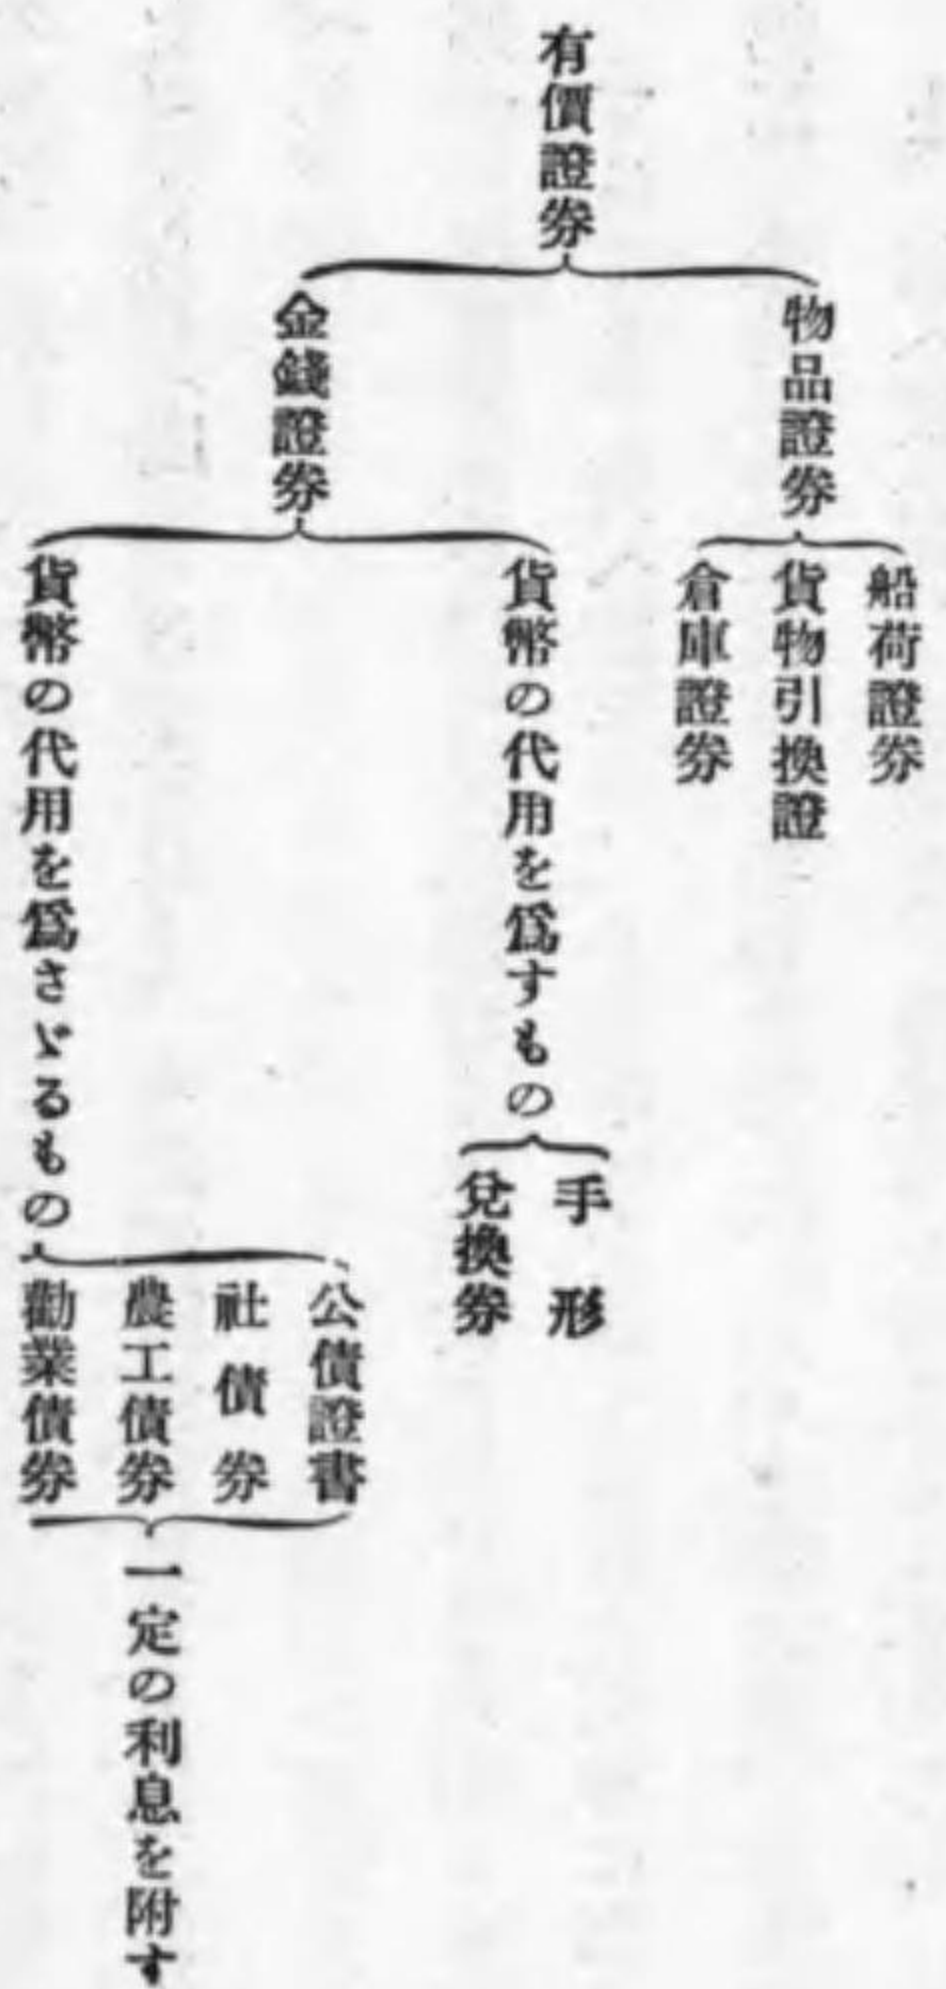 有價證券
物品證券
船荷證券
貨物引換證
倉庫證券
金錢證券
貨幣の代用を爲すもの
手形
兌換券
貨幣の代用を爲さゞるもの
公債證書
社債券
農工債券
勸業債券
一定の利息を附す